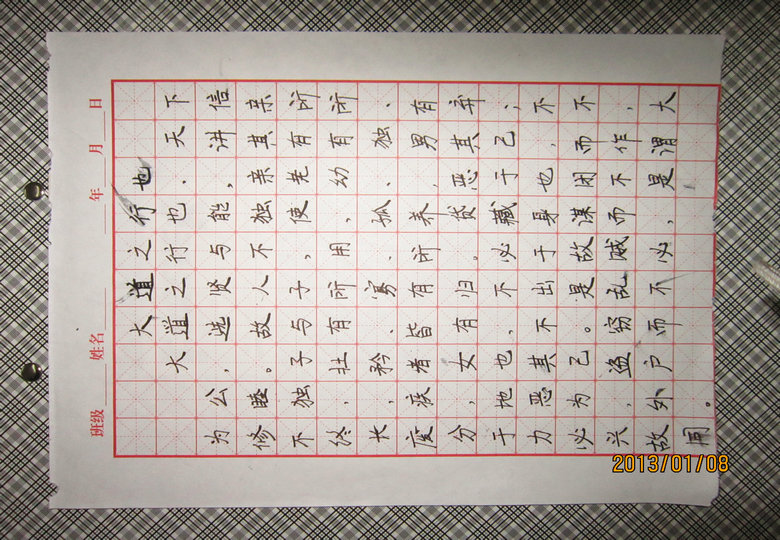 班级 姓名 年 月 日
大道之行也
大道之行也.天下
为公,选贤与能,讲信
修睦。故人不独亲其亲
不独子与子,使老有所
终,壮有所用,幼有所
长,矜、寡、孤、独、
废疾者皆有所养,男有
分,女有归。货恶其弃
于地也,不必藏于己;
力恶其不出于身也,不
必为己。是故谋闭而不
兴,盗窃乱贼而不作,
故外户而不必,是谓大
。
2013/01/08